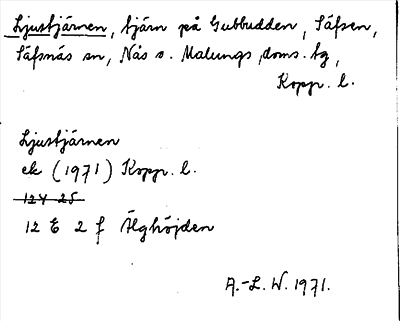 Ljustjärnen, tjärn på Gubbudden, Säfsen,
Säfsnäs sn, Nås o. Malungs doms. tg,
Kopp. l.
Ljustjärnen
ek (1971) Kopp. l.
12 E 2 f Älghöjden
A.-L. W. 1971.